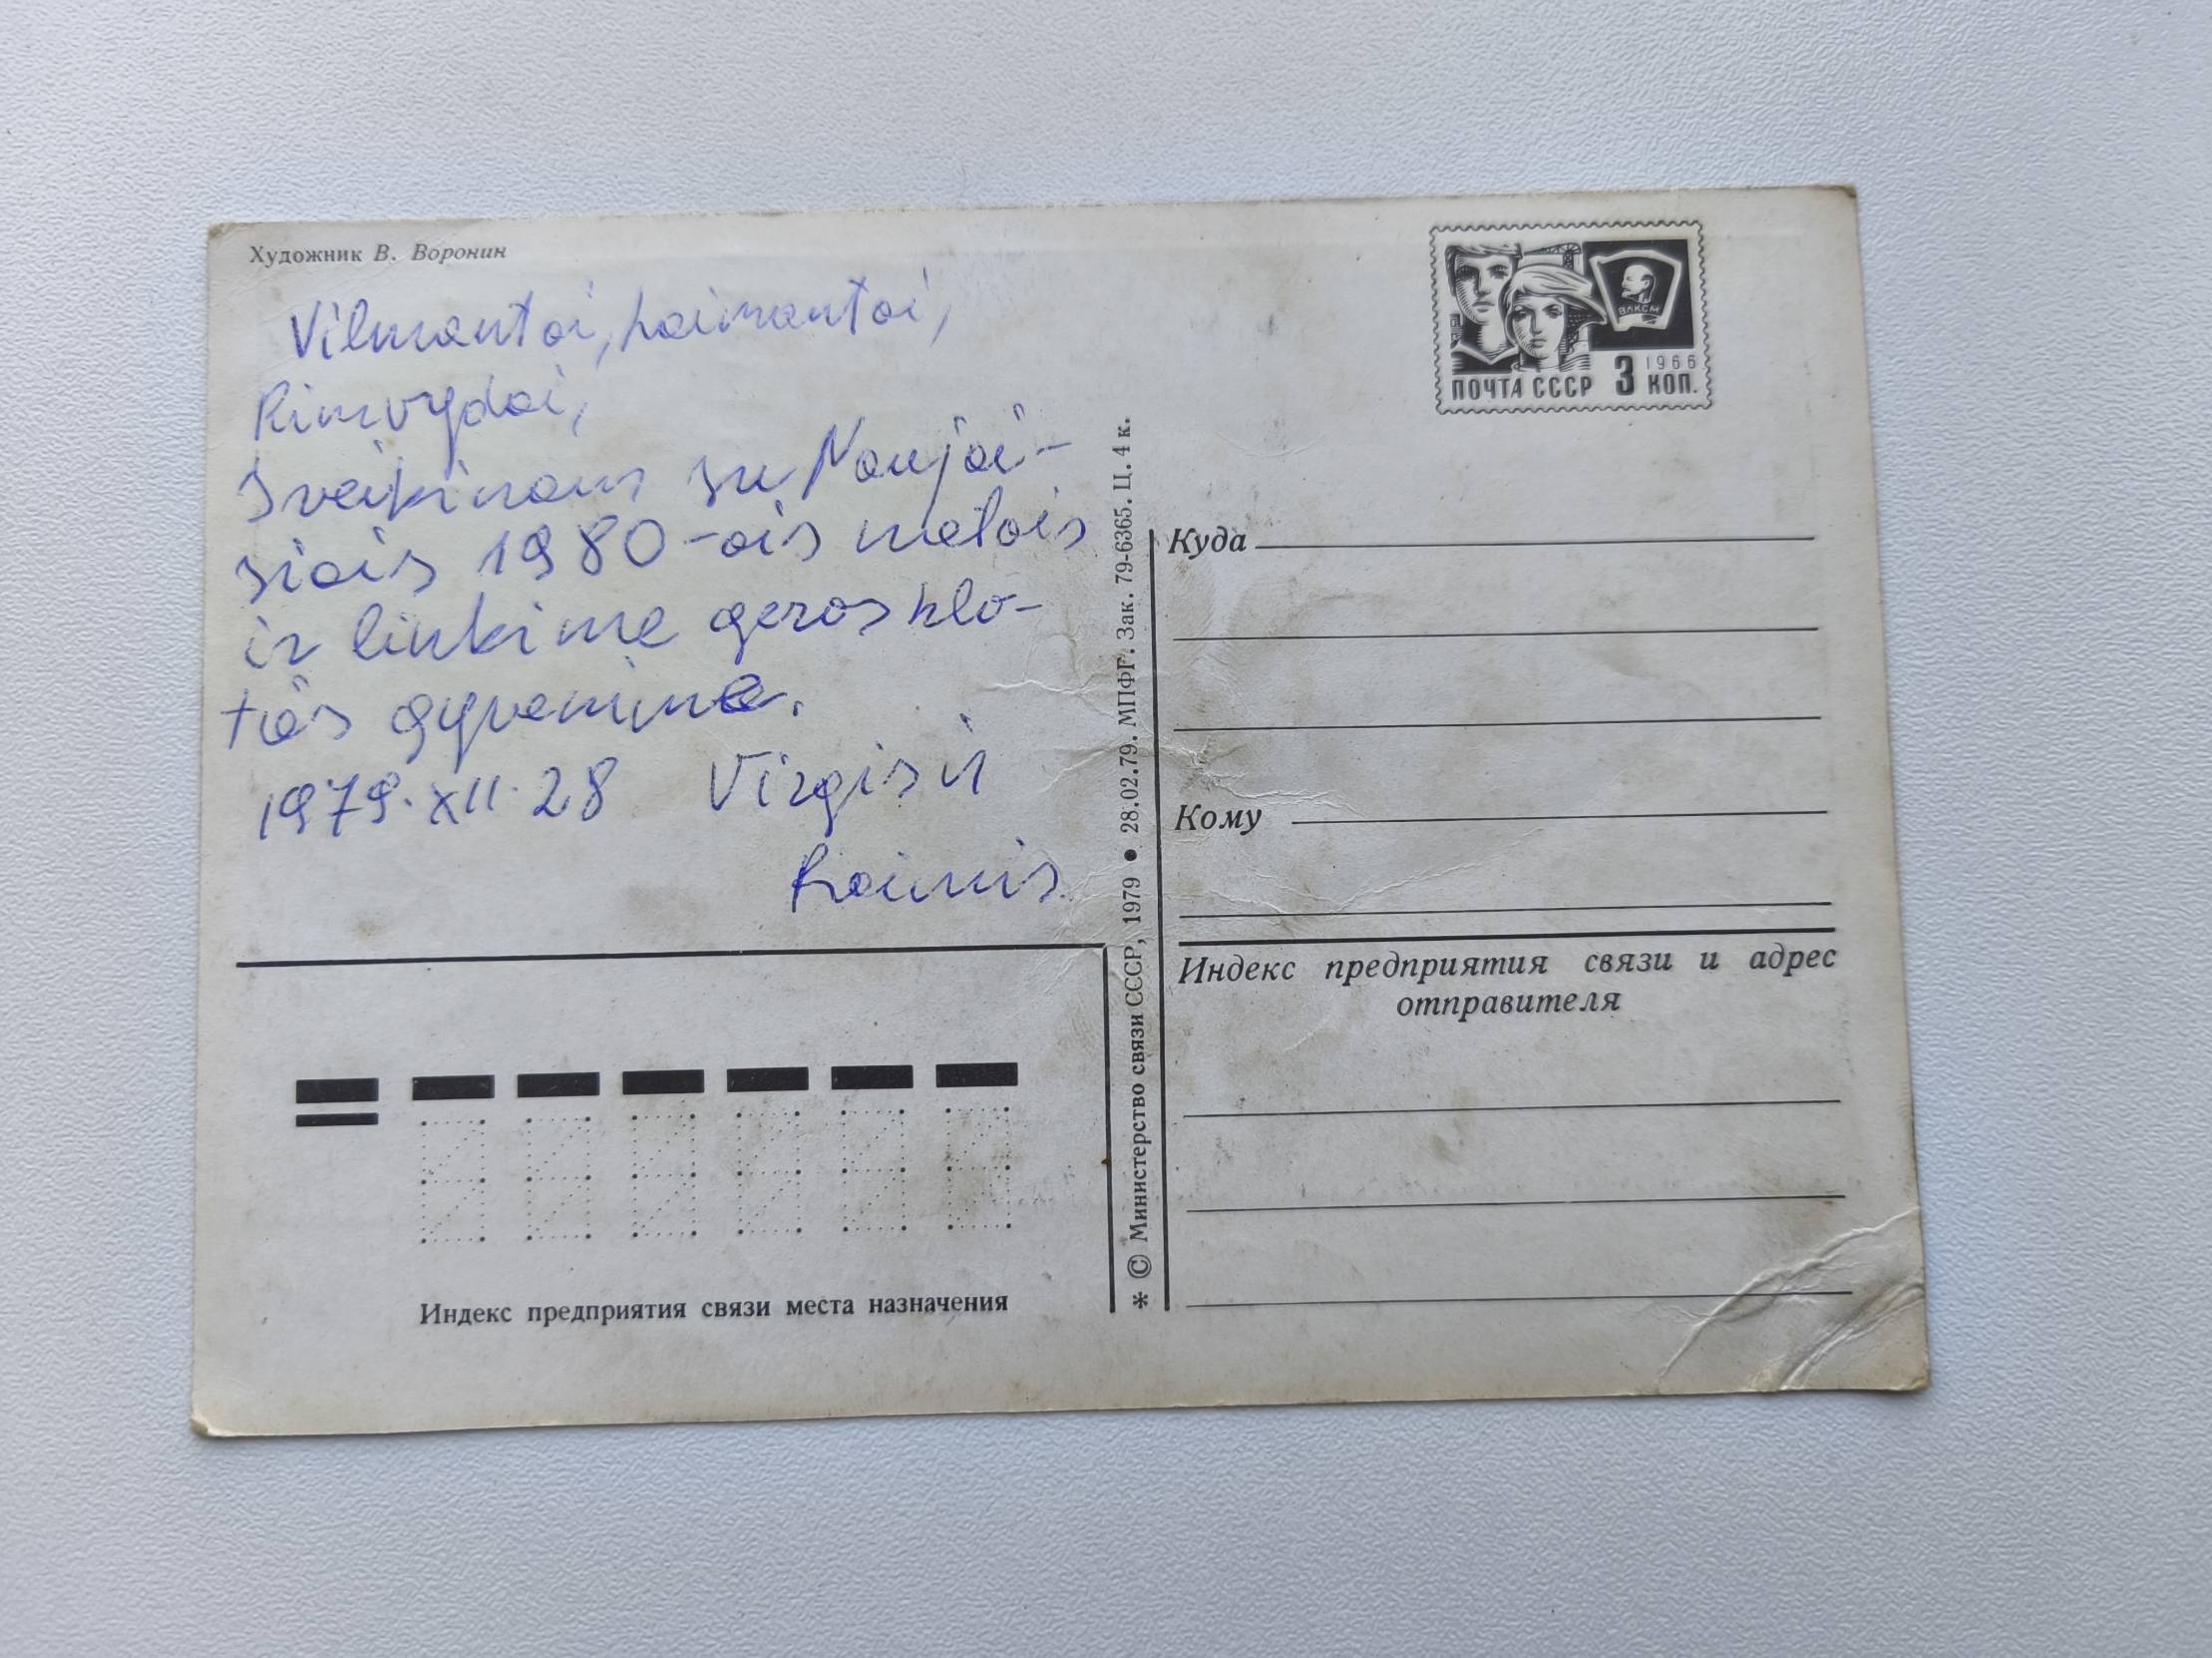 Художник В. Воронин
Vilmantai, Laimantai,
Rimvydai,
Sveikinam su Naujai-
siais 1980-ais metais
ir linkime geros klo-
ties gyvenime.
1979.XII.28 Virgis ir
Raimis.
ВЛКСМ
1966
ПОЧТА СССР 3 КОП.
Куда
Кому
Индекс предприятия связи и адрес
отправителя
* © Министерство связи СССР, 1979 ● 28.02.79. МПФГ. Зак. 79-6365. Ц. 4 к.
Индекс предприятия связи места назначения